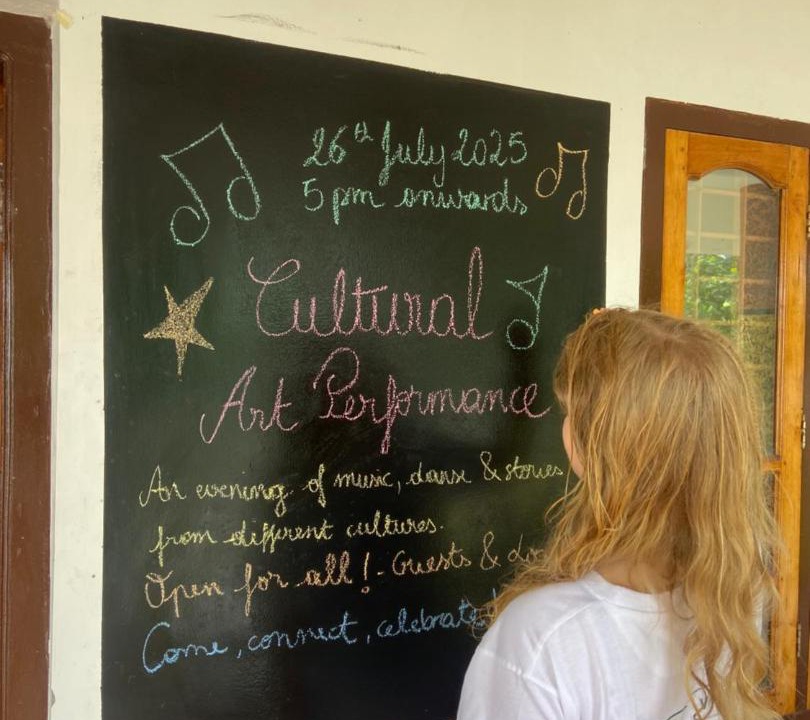 26th July 2025
5 pm onwards
Cultural
Art Performance
An evening of music, danse & stories
from different cultures.
Open for all! - Guests &
Come, connect, celebrate!